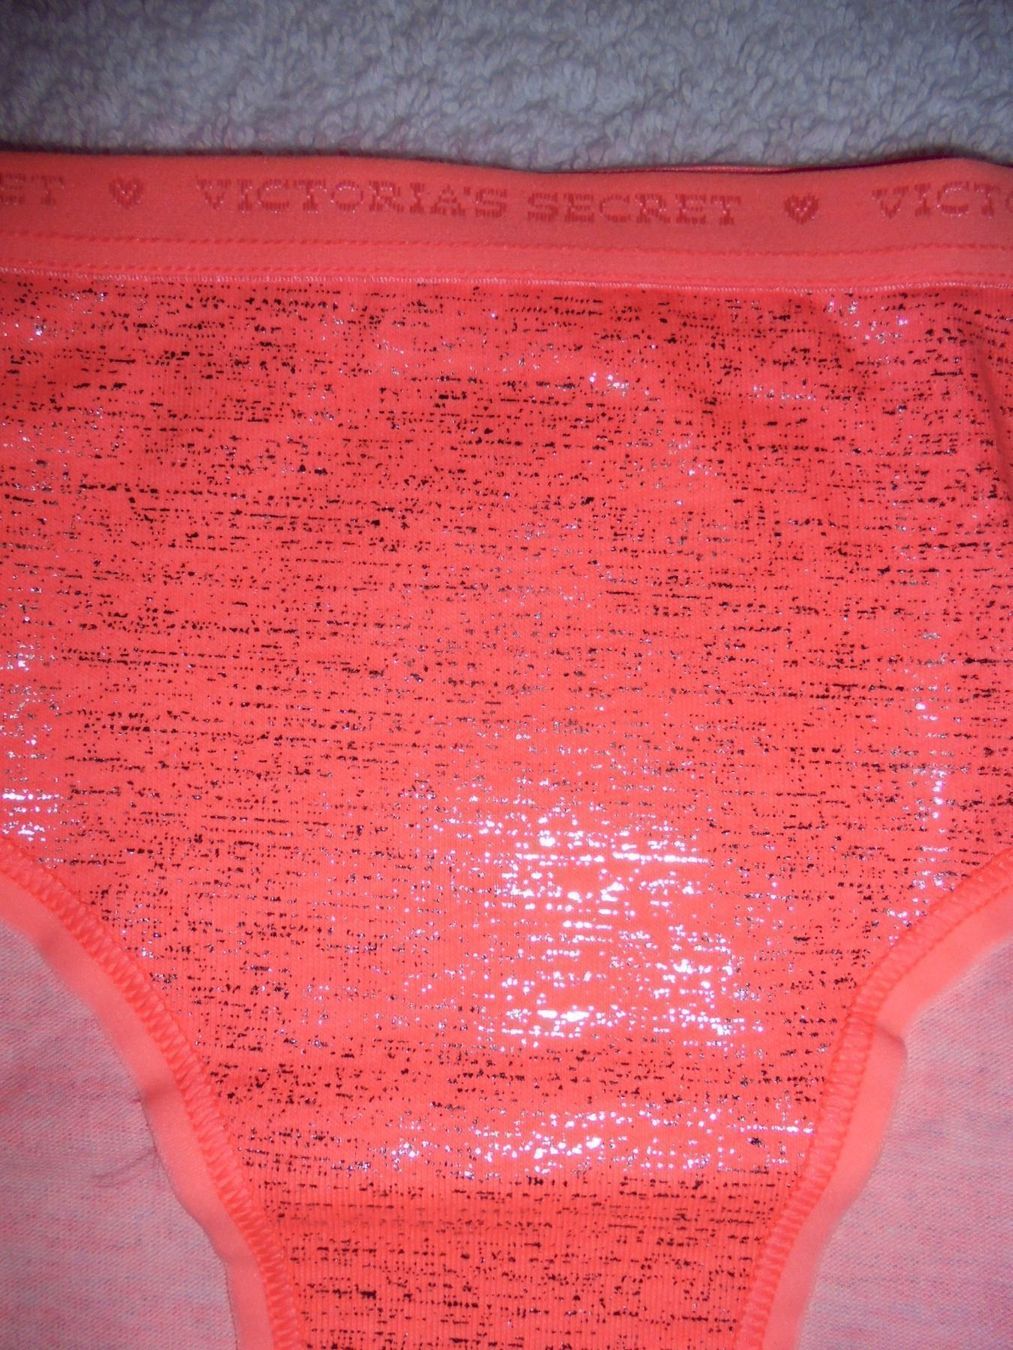 ET ♥ VICTORIA'S SECRET ♥ VICTO